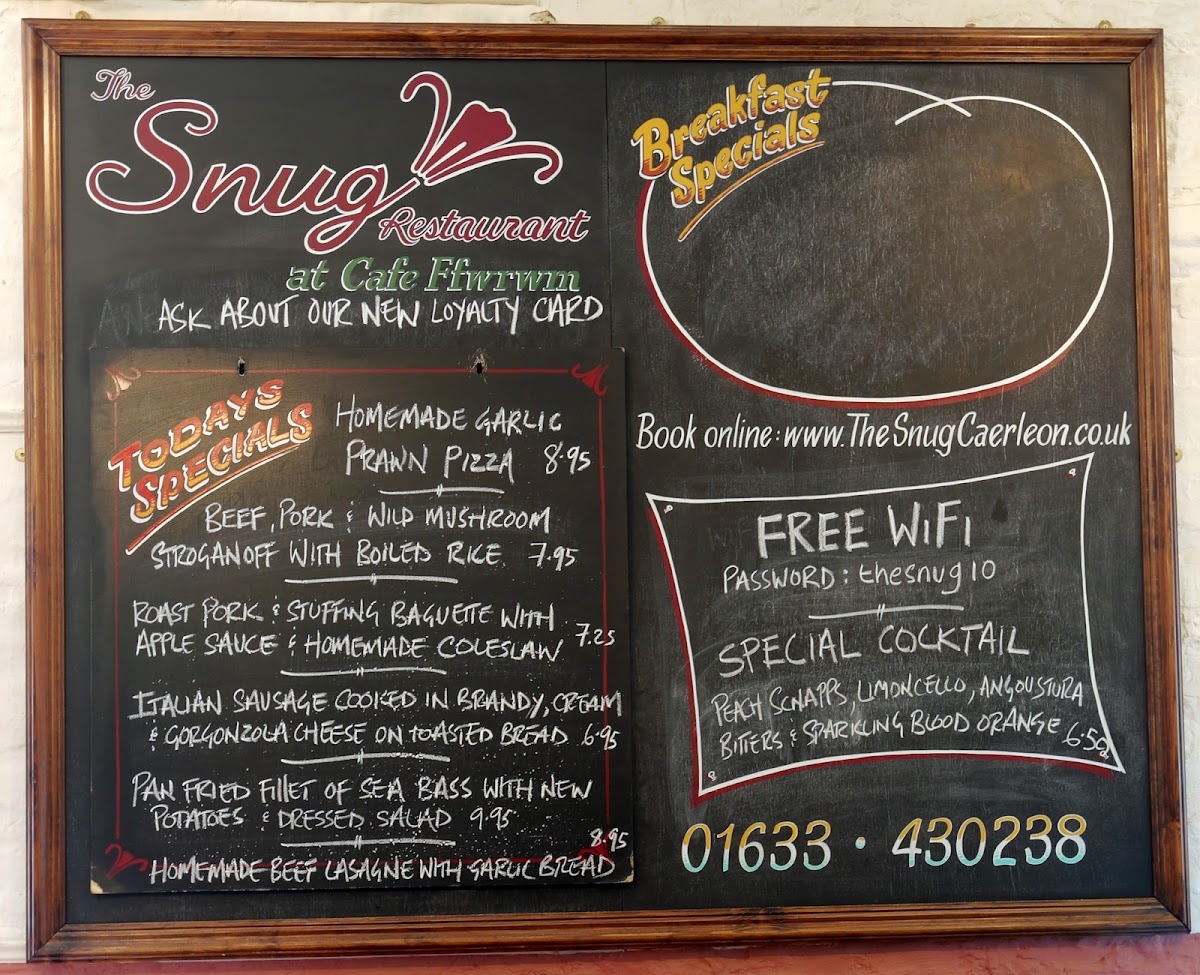 The
Snug
Restaurant
at Cafe Ffwrwm
ASK ABOUT OUR NEW LOYALTY CARD
TODAYS
SPECIALS
HOMEMADE GARLIC
PRAWN PIZZA 8.95
BEEF, PORK & WILD MUSHROOM
STROGANOFF WITH BOILED RICE 7.95
ROAST PORK & STUFFING BAGUETTE WITH
APPLE SAUCE & HOMEMADE COLESLAW 7.25
ITALIAN SAUSAGE COOKED IN BRANDY, CREAM
& GORGONZOLA CHEESE ON TOASTED BREAD 6.95
PAN FRIED FILLET OF SEA BASS WITH NEW
POTATOES & DRESSED SALAD 9.95
8.95
HOMEMADE BEEF LASAGNE WITH GARLIC BREAD
Breakfast
Specials
Book online: www.TheSnugCaerleon.co.uk
FREE WiFi
PASSWORD: thesnug10
SPECIAL COCKTAIL
PEACH SCNAPPS, LIMONCELLO, ANGOUSTURA
BITTERS & SPARKLING BLOOD ORANGE 6.50
01633 · 430238